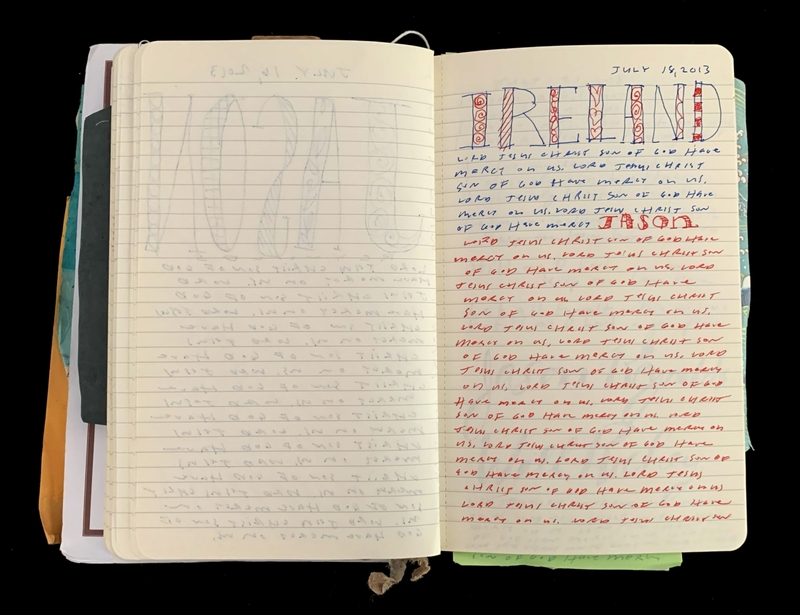 JULY 18, 2013
IRELAND
LORD JESUS CHRIST SON OF GOD HAVE
MERCY ON US. LORD JESUS CHRIST
SON OF GOD HAVE MERCY ON US.
LORD JESUS CHRIST SON OF GOD HAVE
MERCY ON US. LORD JESUS CHRIST SON
OF GOD HAVE MERCY JASON
LORD JESUS CHRIST SON OF GOD HAVE
MERCY ON US. LORD JESUS CHRIST SON
OF GOD HAVE MERCY ON US. LORD
JESUS CHRIST SON OF GOD HAVE
MERCY ON US LORD JESUS CHRIST
SON OF GOD HAVE MERCY ON US.
LORD JESUS CHRIST SON OF GOD HAVE
MERCY ON US. LORD JESUS CHRIST SON
OF GOD HAVE MERCY ON US. LORD
JESUS CHRIST SON OF GOD HAVE MERCY
ON US. LORD JESUS CHRIST SON OF GOD
HAVE MERCY ON US. LORD JESUS CHRIST
SON OF GOD HAVE MERCY ON US LORD
JESUS CHRIST SON OF GOD HAVE MERCY ON
US. LORD JESUS CHRIST SON OF GOD HAVE
MERCY ON US. LORD JESUS CHRIST SON OF
GOD HAVE MERCY ON US. LORD JESUS
CHRIST SON OF GOD HAVE MERCY ON US
LORD JESUS CHRIST SON OF GOD HAVE
MERCY ON US. LORD JESUS CHRIST SON
SON OF GOD HAVE MERCY